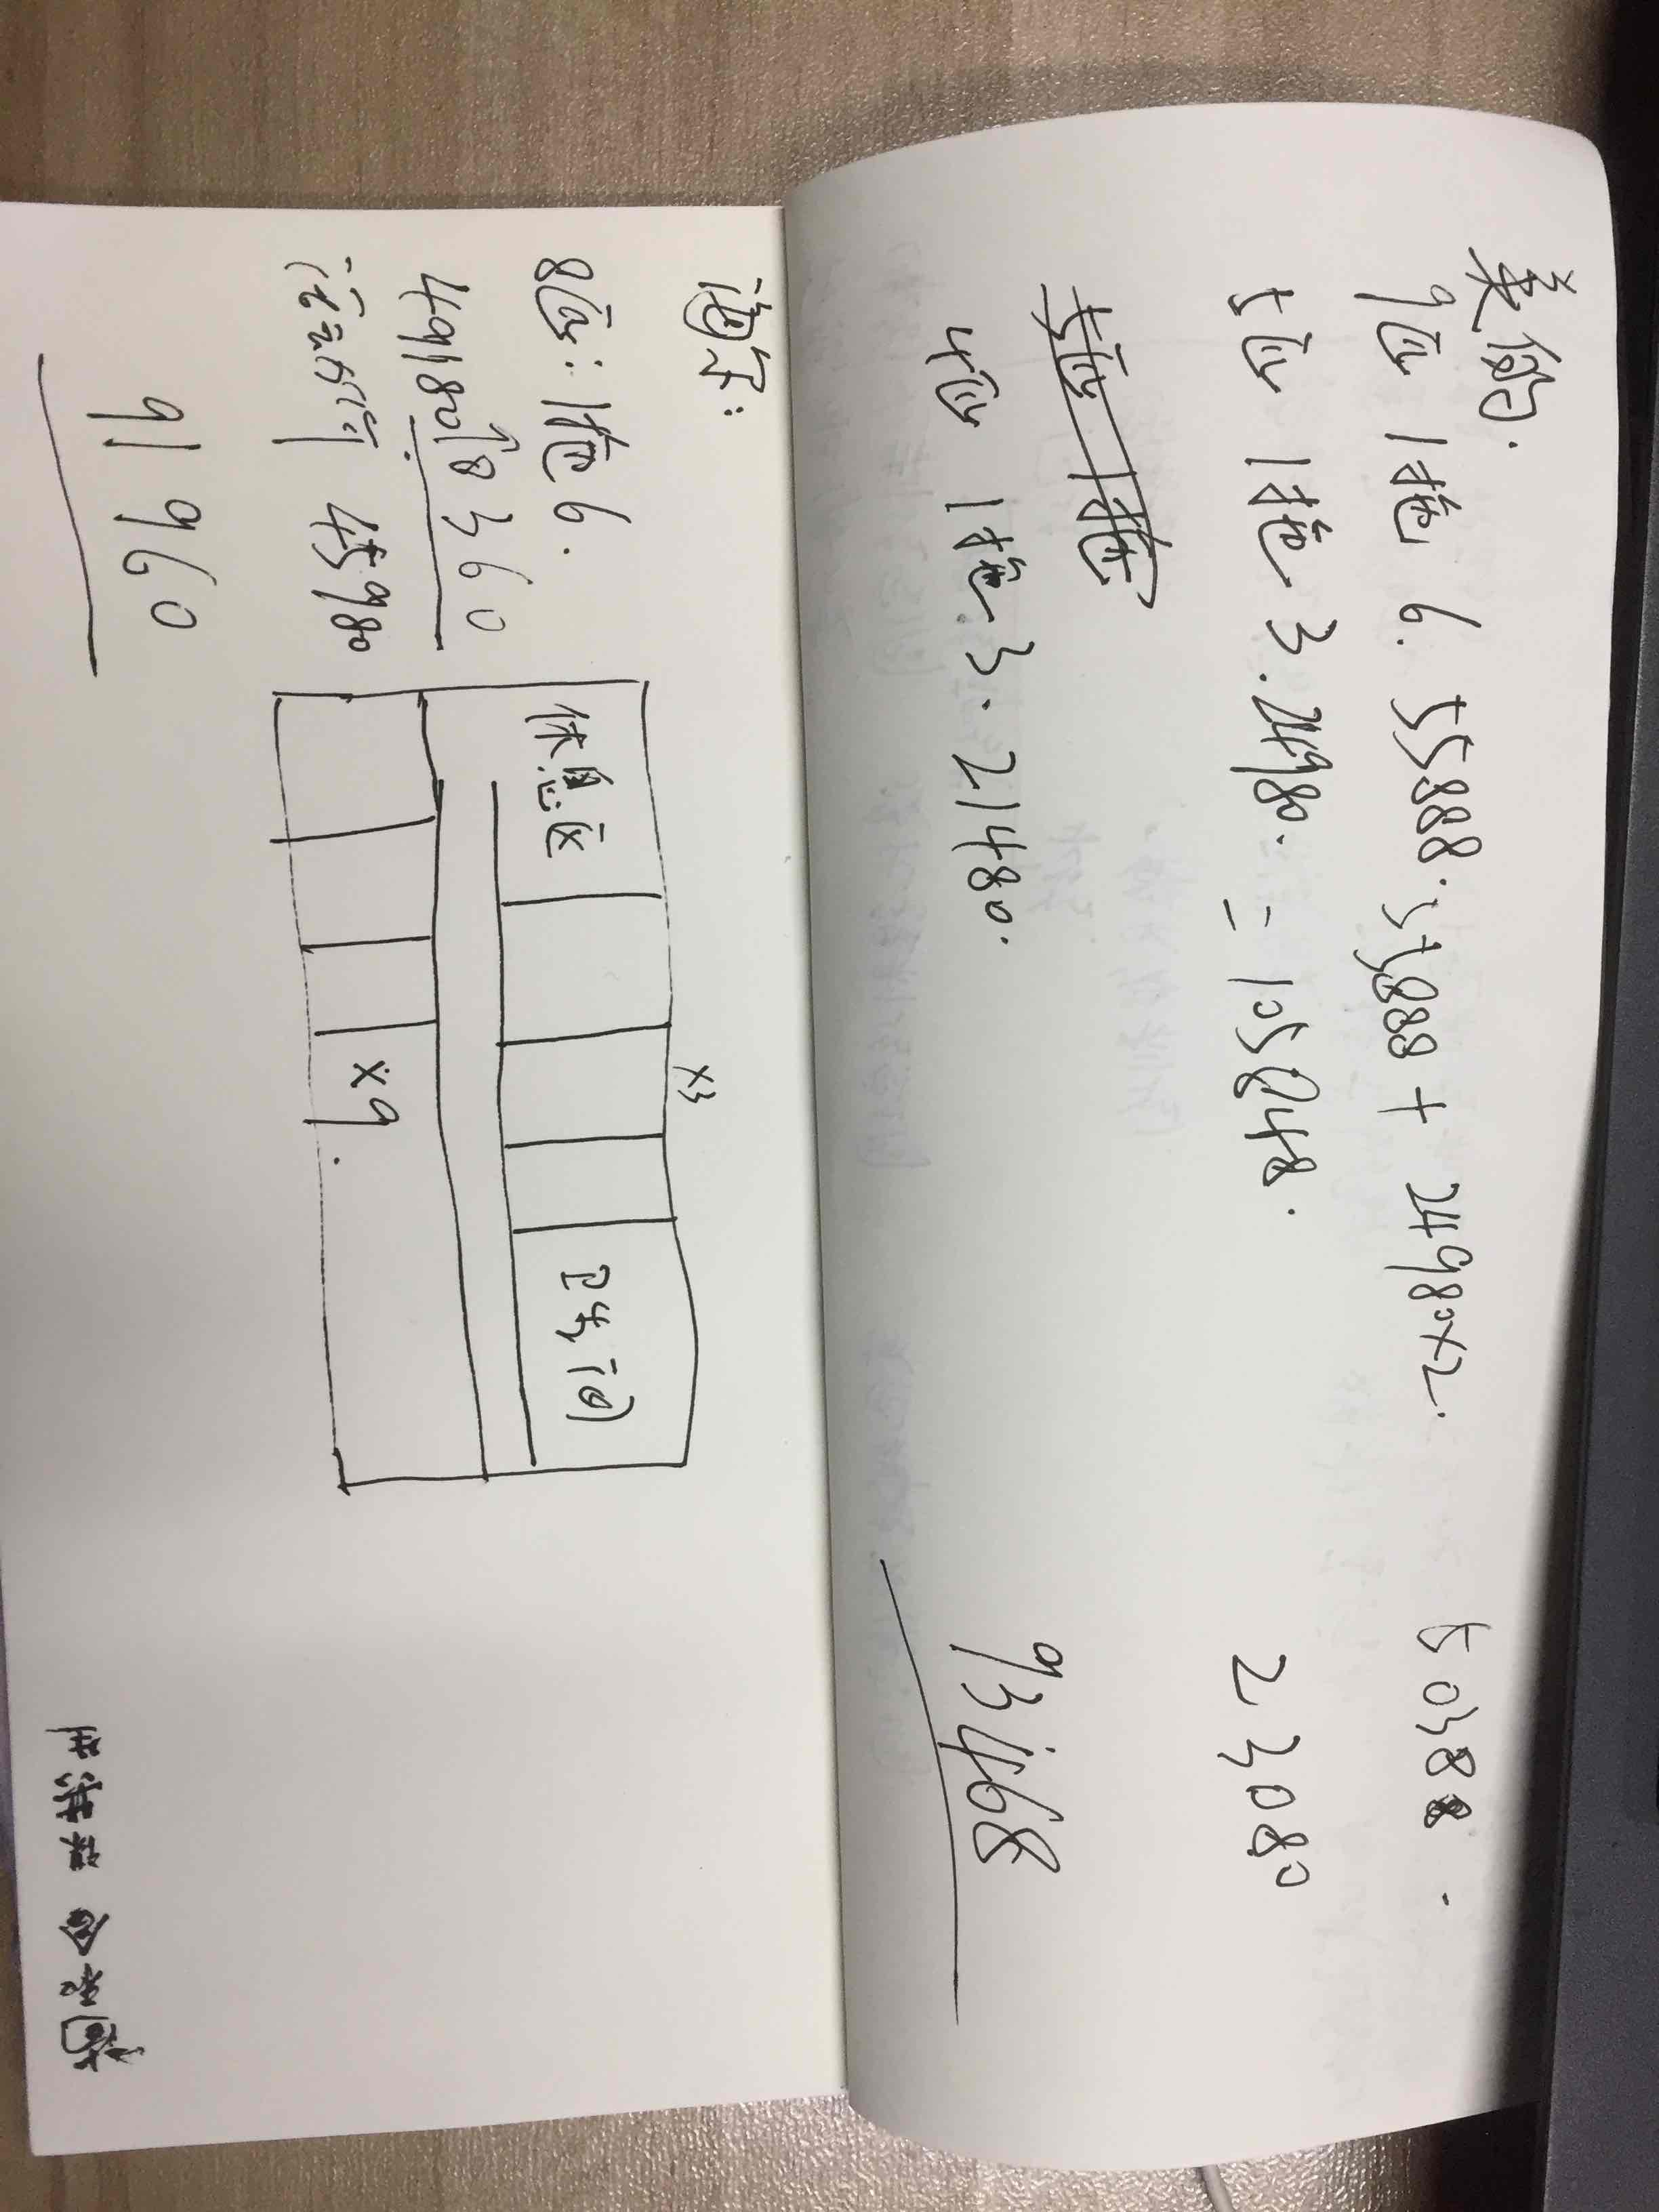 美的.
9匹 1拖 6. 55888. 55888 + 24980×2. 50388.
5匹 1拖 3. 24980. = 105848. 23080
5匹 1拖
4匹 1拖 3. 21480. 93468
海尔:
8匹: 1拖6.
49180 → 8360
45980
91960
休息区
卫生间
×3
×9